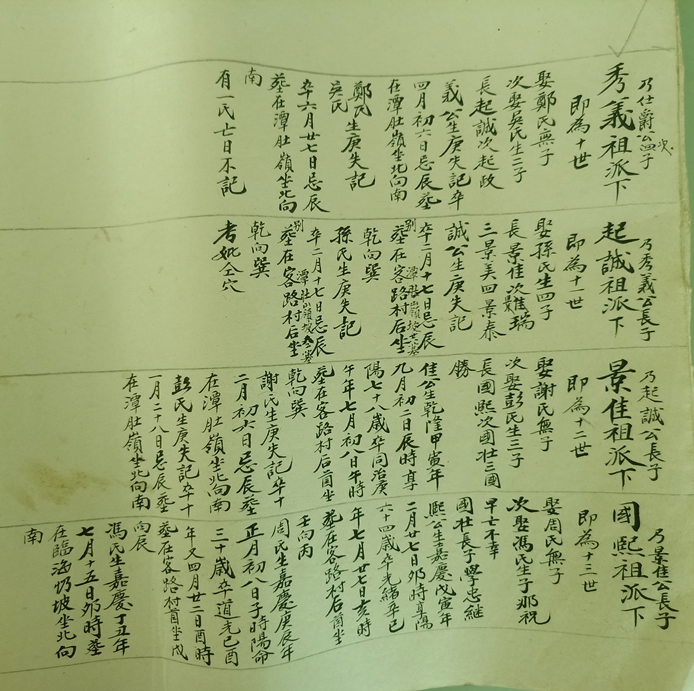 乃仕爵公四子
次
秀義祖派下
即為十世
娶鄭氏無子
次娶吳氏生二子
長起誠次起政
義公生庚失記卒
四月初六日忌辰葬
在潭肚嶺坐北向南
鄭氏生庚失記
吳氏
卒六月廿七日忌辰
葬在潭肚嶺坐北向
南
有一氏亡日不記
乃秀義公長子
起誠祖派下
即為十一世
娶孫氏生四子
長景佳次景瑞
三景美四景泰
誠公生庚失記
卒二月十七日忌辰
別葬在客路村后坐
乾向巽
孫氏生庚失記
卒二月十七日忌辰
別葬在客路村后坐
乾向巽
考妣仝穴
乃起誠公長子
景佳祖派下
即為十二世
娶謝氏無子
次娶彭氏生三子
長國熙次國壯三國
勝
佳公生乾隆甲寅年
九月初二日辰時享
陽七十八歲卒同治庚
午年七月初八日午時
葬在客路村后酉坐
乾向巽
謝氏生庚失記卒十
二月初六日忌辰葬
在潭肚嶺坐北向南
彭氏生庚失記卒十
一月二十八日忌辰葬
在潭肚嶺坐北向南
乃景佳公長子
國熙祖派下
即為十三世
娶周氏無子
次娶馮氏生子那祝
早亡不幸
國壯長子學忠継
熙公生嘉慶戊寅年
二月廿七日夘時享陽
六十四歲卒光緒辛巳
年七月廿七日亥時
葬在客路村后酉坐
壬向丙
周氏生嘉慶庚辰年
正月初八日子時陽命
三十歲卒道光己酉
年又四月廿二日酉時
葬在客路村酉坐戌
向辰
馮氏生嘉慶丁丑年
七月十五日夘時葬
在臨海仍坡坐北向
南